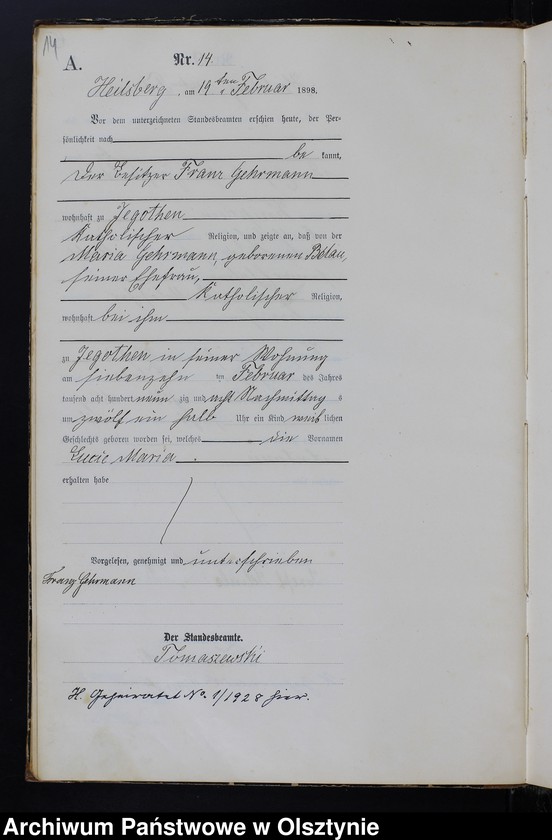 14
A.
Nr. 14.
Heilsberg, am 19ten Februar 1898.
Vor dem unterzeichneten Standesbeamten erschien heute, der Per-
sönlichkeit nach
be kannt,
Der Besitzer Franz Gehrmann
wohnhaft zu Jegothen
Katholischer Religion, und zeigte an, daß von der
Maria Gehrmann, geborenen
seiner Ehefrau,
Katholischer Religion,
wohnhaft bei ihm
zu Jegothen in seiner Wohnung
am siebenzehn ten Februar des Jahres
tausend acht hundert neun zig und acht Nachmittag s
um zwölf ein halb Uhr ein Kind weib lichen
Geschlechts geboren worden sei, welches die Vornamen
Lucie Maria.
erhalten habe
Vorgelesen, genehmigt und unterschrieben
Franz Gehrmann
Der Standesbeamte.
Tomaszewski
H. Geheiratet No. 1/1928 hier.
Archiwum Państwowe w Olsztynie